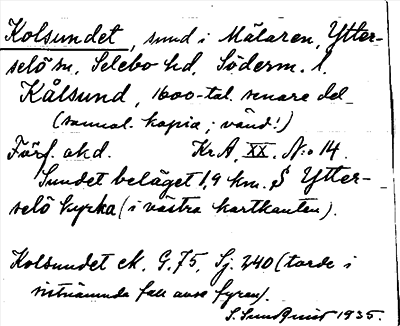 Kolsundet, sund i Mälaren, Ytter-
selö sn, Selebo hd, Söderm. l.
Kålsund, 1600-tal. senare del
(samal. kopia; vänd!)
Förf. okd. Kr.A, XX. N:o 14
Sundet beläget 1,9 km. S Ytter-
selö kyrka (i västra kartkanten).
Kolsundet ek. G.75, Sj. 240 (torde i
sistnämnda fall avse fyren).
S. Sundquist 1935.